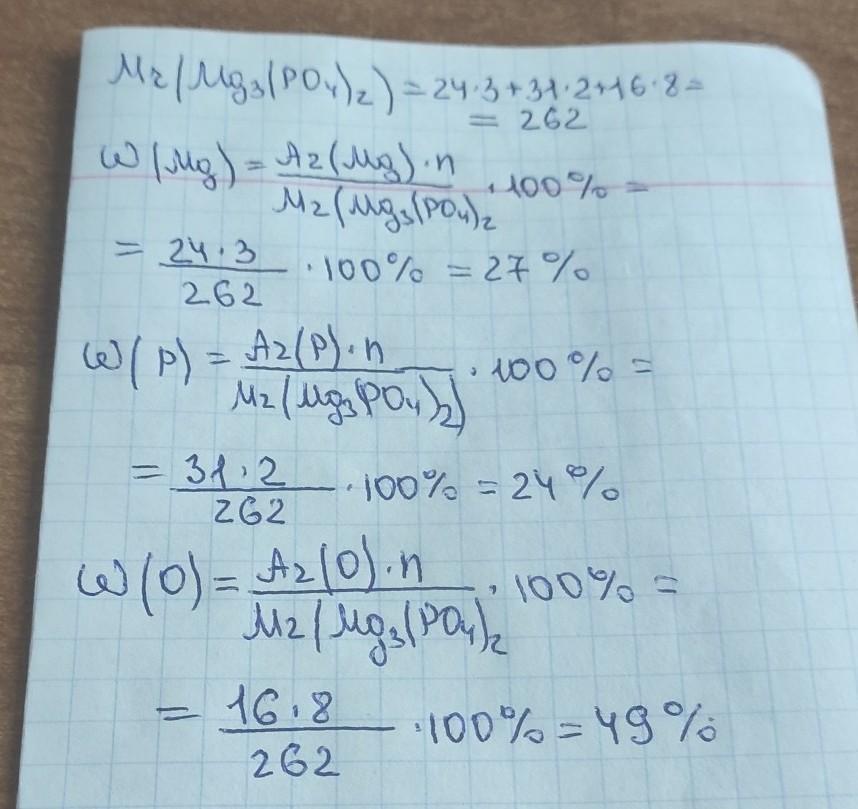 Mr(Mg₃(PO₄)₂) = 24·3+31·2+16·8=
= 262
ω(Mg) = Ar(Mg)·n / Mr(Mg₃(PO₄)₂ ·100% =
= 24·3 / 262 ·100% = 27%
ω(P) = Ar(P)·n / Mr(Mg₃(PO₄)₂) ·100% =
= 31·2 / 262 ·100% = 24%
ω(O) = Ar(O)·n / Mr(Mg₃(PO₄)₂ ·100% =
= 16·8 / 262 ·100% = 49%